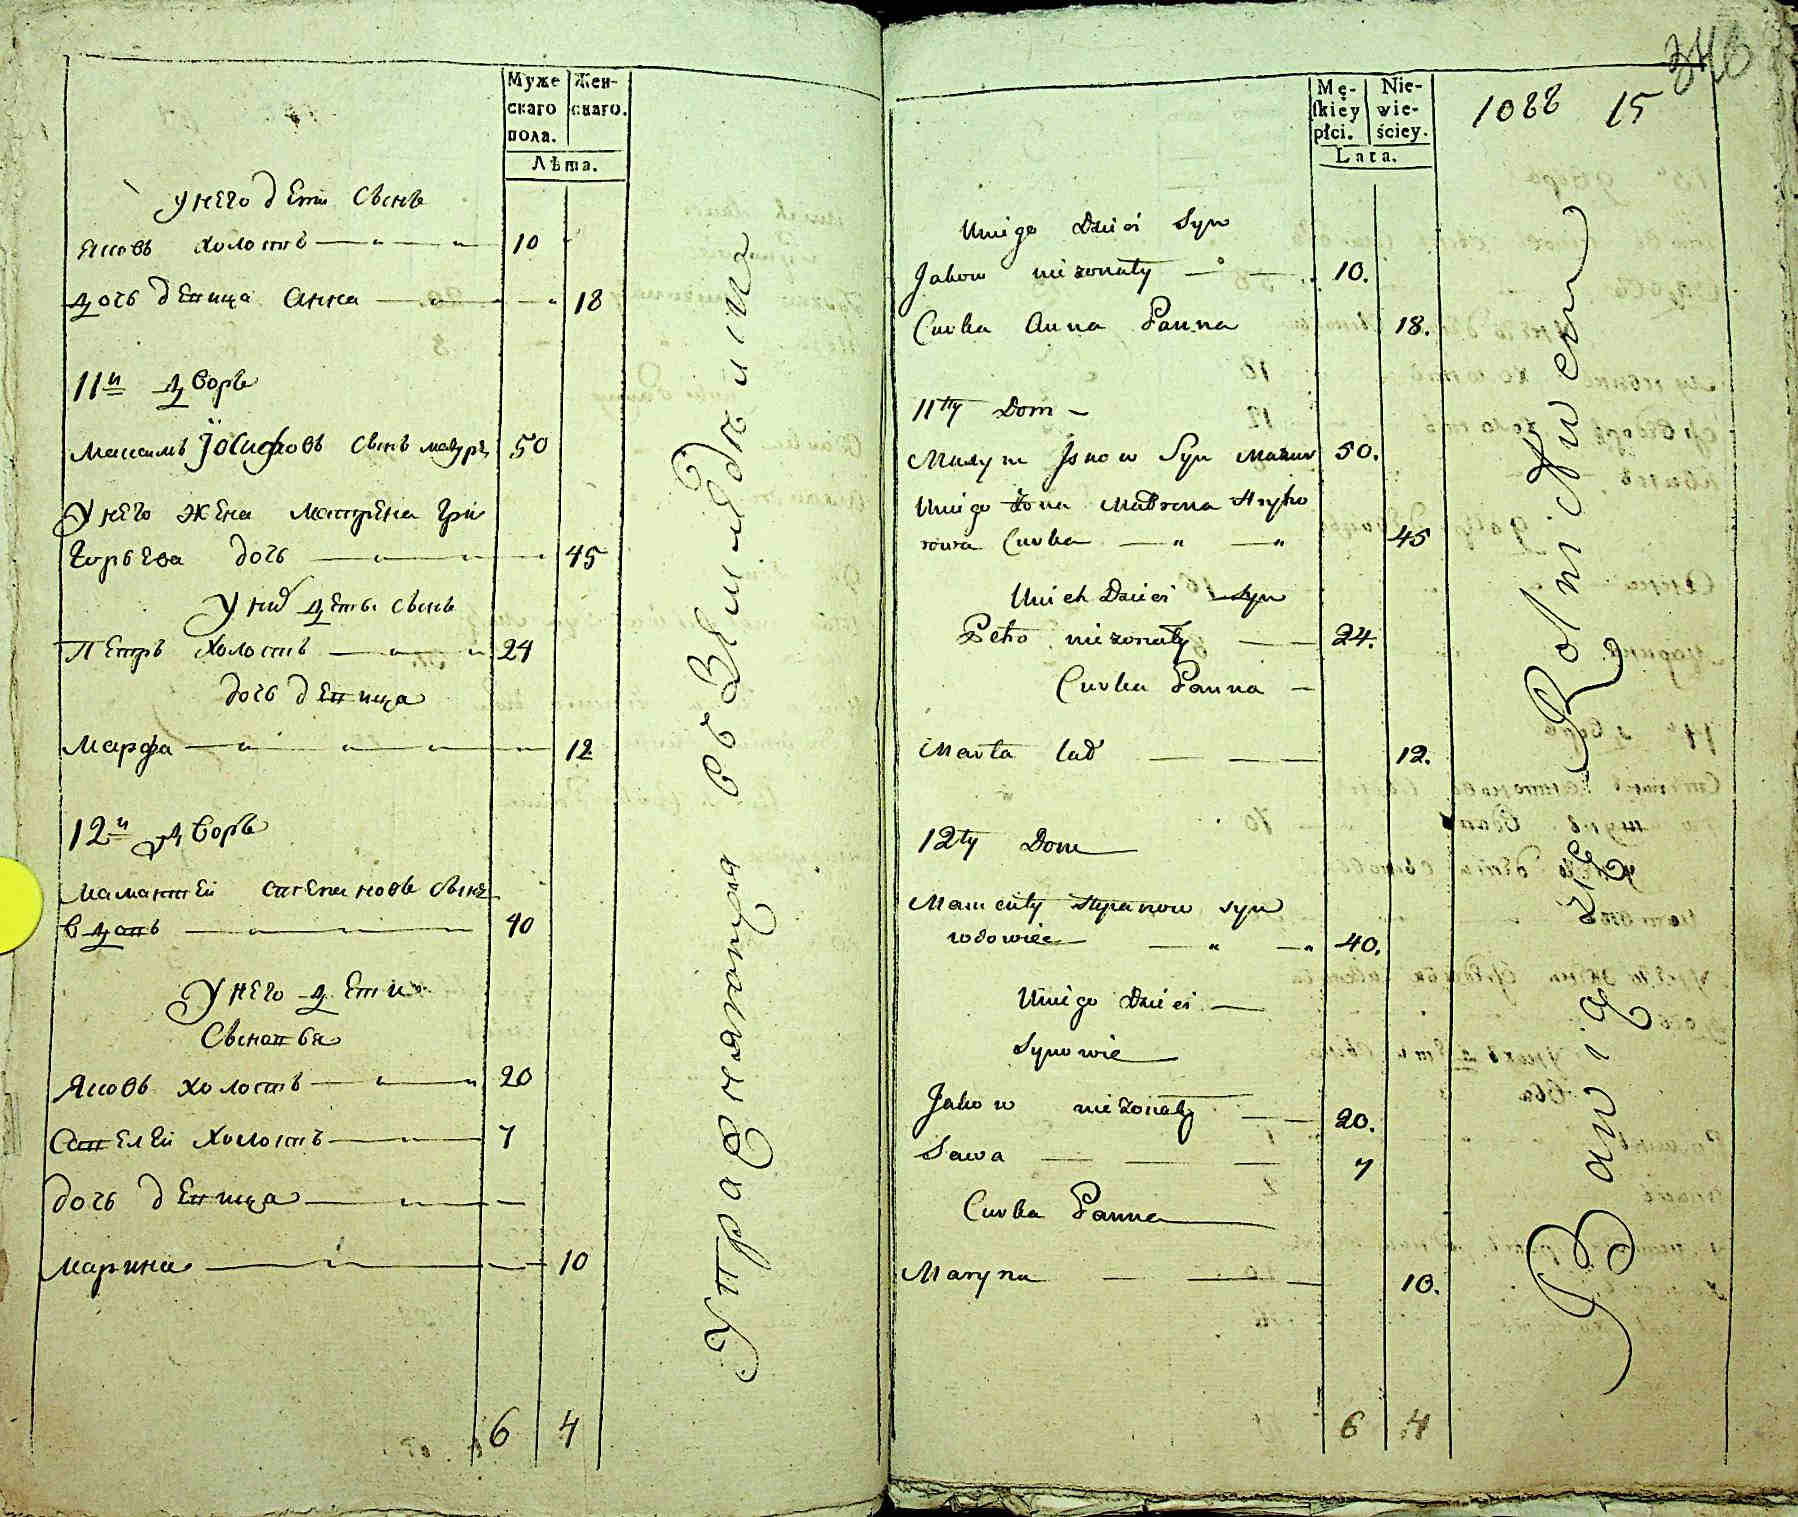 Муже
скаго
пола.
Жен-
скаго.
Лѣта.
У него дети сынъ
Яковъ холостъ 10
дочь девица Анна 18
11й дворъ
Максимъ Іосифовъ сынъ мазуръ 50
У него жена Матрена Гри
горьева дочь 45
У них дети сынъ
Петръ холостъ 24
дочь девица
Марфа 12
12й дворъ
Мамантей Степановъ сынъ
вдовъ 40
У него дети
Сыновья
Яковъ холостъ 20
Савелей холостъ 7
дочь девица
Марина 10
6 4
Упражняются въ земледелии
348
1088 15
Mę-
skiey
płci.
Nie-
wie-
ściey.
Lata.
Uniego Dzieci Syn
Jakow niezonaty 10.
Curka Anna Panna 18.
11ty Dom
Maxym Syn Mazur 50.
Uniego Żona Matrona Hryho
rowa Curka 45
Unich Dzieci Syn
Petro niezonaty 24.
Curka Panna
Marta lat 12.
12ty Dom
Mamenty Stepanow syn
wdowiec 40.
Uniego Dzieci
Synowie
Jakow niezonaty 20.
Sawa 7
Curka Panna
Maryna 10.
6 4
Bawią się Rolnictwem